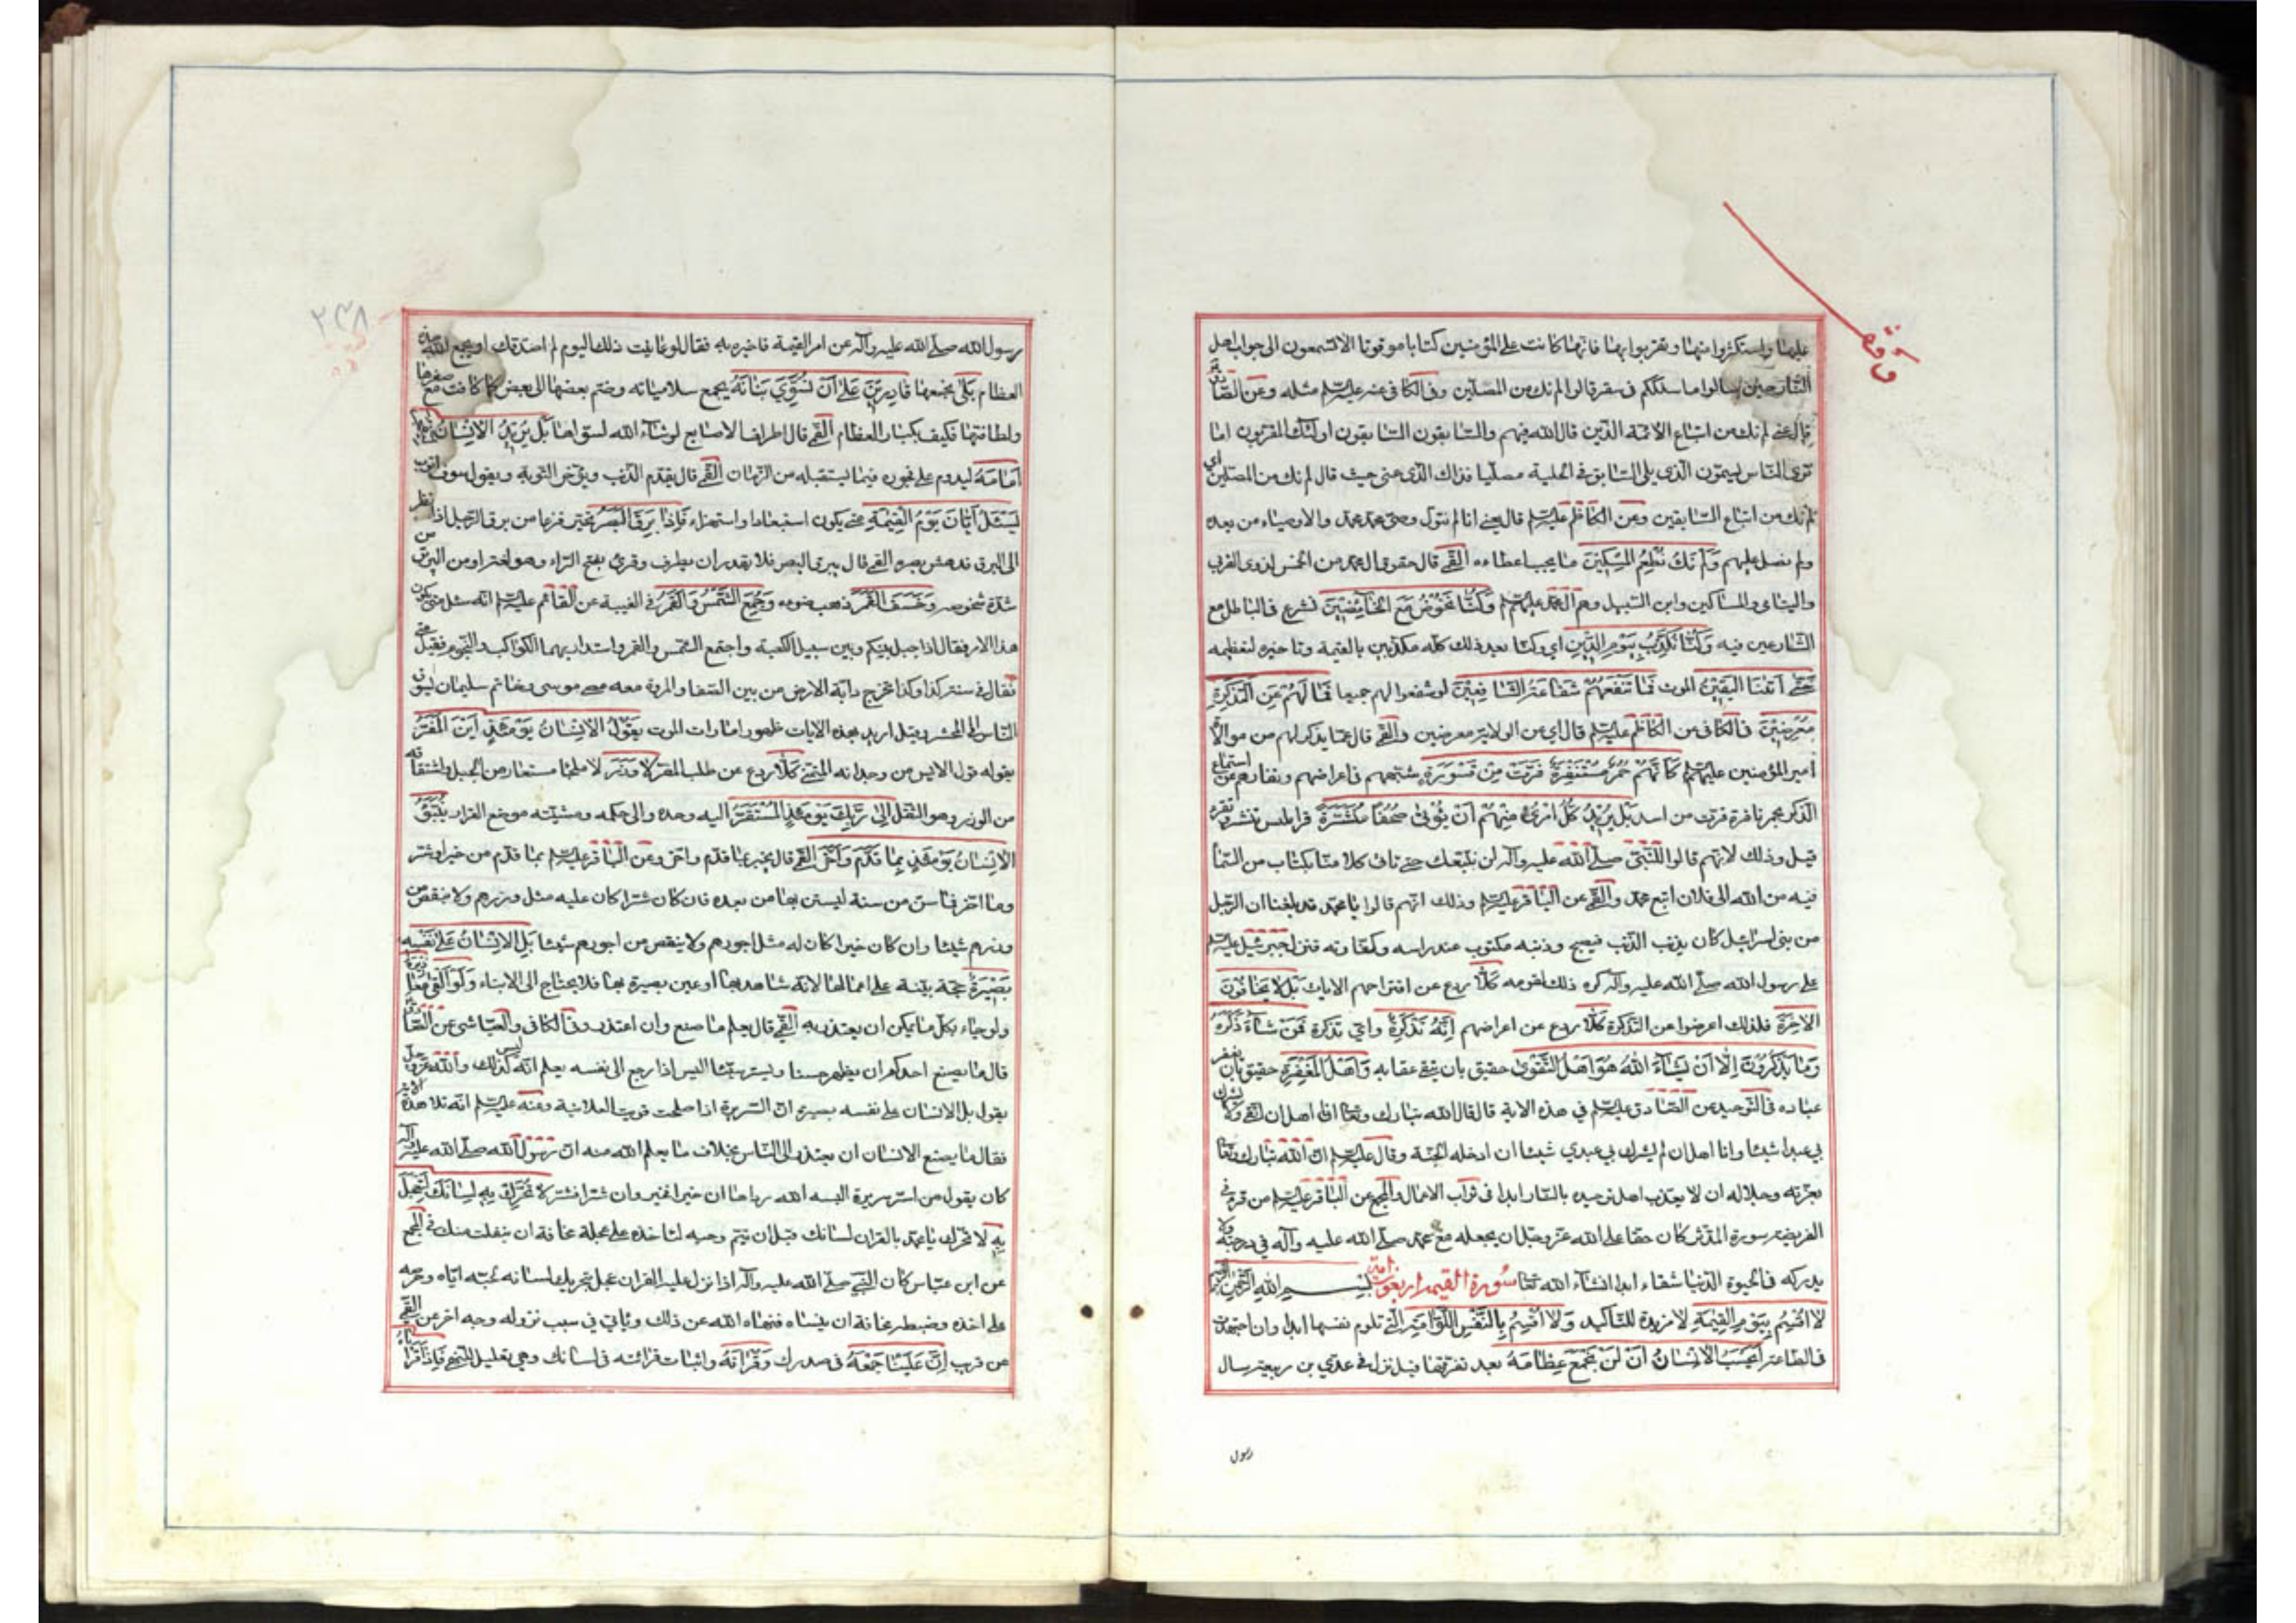 وقف
عليها واستكثروا منها وتقربوا بها فانها كانت على المؤمنين كتابا موقوتا الا تسمعون الى جواب اهل
النار حين سالوا ما سلككم في سقر قالوا لم نك من المصلين وفي الكافي عنه عليه السلم مثله وعن الصادق
قال عنى لم نك من اتباع الائمة الذين قال الله فيهم والسابقون السابقون اولئك المقربون اما
ترى الناس يسمون الذي يلي السابق في الحلبة مصليا فذاك الذي عنى حيث قال لم نك من المصلين اي
لم نك من اتباع السابقين وعن الكاظم عليه السلم قال يعني انا لم نتول وصي محمد والاوصياء من بعده
ولم نصل عليهم وَلَمْ نَكُ نُطْعِمُ الْمِسْكِينَ ما يجب اعطاءه القمي قال حقوق ال محمد من الخمس لذوي القربى
واليتامى والمساكين وابن السبيل وهم آل محمد عليهم السلم وَكُنَّا نَخُوضُ مَعَ الْخَائِضِينَ نشرع في الباطل مع
الشارعين فيه وَكُنَّا نُكَذِّبُ بِيَوْمِ الدِّينِ اي وكنا بعد ذلك كله مكذبين بالقيمة وتاخيره لتعظيمه
حَتَّى أَتَنَا الْيَقِينُ الموت فَمَا تَنْفَعُهُمْ شَفَاعَةُ الشَّافِعِينَ لو شفعوا لهم جميعا فَمَا لَهُمْ عَنِ التَّذْكِرَةِ
مُعْرِضِينَ في الكافي عن الكاظم عليه السلم قال اي عن الولاية معرضين والقمي قال عما يذكر لهم من موالاة
أمير المؤمنين عليه السلم كَأَنَّهُمْ حُمُرٌ مُسْتَنْفِرَةٌ فَرَّتْ مِنْ قَسْوَرَةٍ شبههم في اعراضهم ونفارهم عن استماع
الذكر بحمر نافرة فرت من اسد بَلْ يُرِيدُ كُلُّ امْرِئٍ مِنْهُمْ أَنْ يُؤْتَى صُحُفًا مُنَشَّرَةً قراطيس تنشر وتقرء
قيل وذلك لانهم قالوا للنبي صلى الله عليه وآله لن نتبعك حتى تاتي كلا منا بكتاب من السماء
فيه من الله الى فلان اتبع محمد والقمي عن الباقر عليه السلم وذلك انهم قالوا يا محمد قد بلغنا ان الرجل
من بني اسرائيل كان يذنب الذنب فيصبح وذنبه مكتوب عند راسه وكفارته فنزل جبرئيل عليه السلم
على رسول الله صلى الله عليه وآله كره ذلك لقومه كَلَّا ردع عن اقتراحهم الايات بَلْ لَا يَخَافُونَ
الْآخِرَةَ فلذلك اعرضوا عن التذكرة كَلَّا ردع عن اعراضهم إِنَّهُ تَذْكِرَةٌ واي تذكرة فَمَنْ شَاءَ ذَكَرَهُ
وَمَا يَذْكُرُونَ إِلَّا أَنْ يَشَاءَ اللهُ هُوَ أَهْلُ التَّقْوَى حقيق بان يتقى عقابه وَأَهْلُ الْمَغْفِرَةِ حقيق بان يغفر
عباده في التوحيد عن الصادق عليه السلم في هذه الاية قال قال الله تبارك وتعالى انا اهل ان اتقى ولا يشرك
بي عبدي شيئا وانا اهل ان لم يشرك بي عبدي شيئا ان ادخله الجنة وقال عليه السلم ان الله تبارك وتعالى
بعزته وجلاله ان لا يعذب اهل توحيده بالنار ابدا في ثواب الاعمال والمجمع عن الباقر عليه السلم من قرء في
الفريضة سورة المدثر كان حقا على الله عز وجل ان يجعله مع محمد صلى الله عليه وآله في درجته ولا
يدركه في الحيوة الدنيا شقاء ابدا انشاء الله تعالى سورة القيمة اربعون اية بسم الله الرحمن الرحيم
لَا أُقْسِمُ بِيَوْمِ الْقِيمَةِ لا مزيدة للتأكيد وَلَا أُقْسِمُ بِالنَّفْسِ اللَّوَّامَةِ التي تلوم نفسها ابدا وان اجتهدت
في الطاعة أَيَحْسَبُ الْإِنْسَانُ أَنْ لَنْ نَجْمَعَ عِظَامَهُ بعد تفرقها قيل نزل في عدي بن ربيعة سال
رسول
٢٤٨
رسول الله صلى الله عليه وآله عن امر القيمة فاخبره به فقال لو عاينت ذلك اليوم لم اصدقك او يجمع الله هذه
العظام بَلَى نجمعها قَادِرِينَ عَلَى أَنْ نُسَوِّيَ بَنَانَهُ بجمع سلامياته وضم بعضها الى بعض كما كانت مع صغرها
ولطافتها فكيف بكبار العظام القمي قال اطراف الاصابع لو شاء الله لسواها بَلْ يُرِيدُ الْإِنْسَانُ لِيَفْجُرَ
أَمَامَهُ ليدوم على فجوره فيما يستقبله من الزمان القمي قال يقدم الذنب ويؤخر التوبة ويقول سوف اتوب
يَسْئَلُ أَيَّانَ يَوْمُ الْقِيمَةِ متى يكون استبعادا واستهزاء فَإِذَا بَرِقَ الْبَصَرُ تحير فزعا من برق الرجل اذا نظر
الى البرق فدهش بصره القمي قال يبرق البصر فلا يقدر ان يطرف وقرئ بفتح الراء وهو لغة او من البريق من
شدة شخوصه وَخَسَفَ الْقَمَرُ ذهب ضوءه وَجُمِعَ الشَّمْسُ وَالْقَمَرُ في الغيبة عن القائم عليه السلم انه سئل متى يكون
هذا الامر فقال اذا حيل بينكم وبين سبيل الكعبة واجتمع الشمس والقمر واستدار بهما الكواكب والنجوم فقيل متى
فقال في سنة كذا وكذا تخرج دابة الارض من بين الصفا والمروة معه عصى موسى وخاتم سليمان ليسوق
الناس الى المحشر وقيل اريد بهذه الايات ظهور امارات الموت يَقُولُ الْإِنْسَانُ يَوْمَئِذٍ أَيْنَ الْمَفَرُّ
يقوله قول الايس من وجدانه المتمني كَلَّا ردع عن طلب المفر لَا وَزَرَ لا ملجأ مستعار من الجبل واشتقاقه
من الوزر وهو الثقل إِلَى رَبِّكَ يَوْمَئِذٍ الْمُسْتَقَرُّ اليه وحده والى حكمه ومشيته موضع القرار يُنَبَّؤُ
الْإِنْسَانُ يَوْمَئِذٍ بِمَا قَدَّمَ وَأَخَّرَ القمي قال يخبر بما قدم واخر وعن الباقر عليه السلم بما قدم من خير او شر
وما اخر فما سن من سنة ليستن بها من بعده فان كان شرا كان عليه مثل وزرهم ولا ينقص من
وزرهم شيئا وان كان خيرا كان له مثل اجورهم ولا ينقص من اجورهم شيئا بَلِ الْإِنْسَانُ عَلَى نَفْسِهِ
بَصِيرَةٌ حجة بينة على اعمالها لانه شاهد بها او عين بصيرة بها فلا يحتاج الى الانباء وَلَوْ أَلْقَى مَعَاذِيرَهُ
ولو جاء بكل ما يمكن ان يعتذر به القمي قال يعلم ما صنع وان اعتذر وفي الكافي والعياشي عن الصادق
قال ما يصنع احدكم ان يظهر حسنا ويستر سيئا اليس اذا رجع الى نفسه يعلم انه ليس كذلك والله عز وجل
يقول بل الانسان على نفسه بصيرة ان السريرة اذا صلحت قويت العلانية وعنه عليه السلم انه تلا هذه الاية
فقال ما يصنع الانسان ان يعتذر الى الناس بخلاف ما يعلم الله منه ان رسول الله صلى الله عليه وآله
كان يقول من اسر سريرة البسه الله رداها ان خيرا فخير وان شرا فشر لَا تُحَرِّكْ بِهِ لِسَانَكَ لِتَعْجَلَ
بِهِ لا تحرك يا محمد بالقران لسانك قبل ان يتم وحيه لتاخذه على عجلة مخافة ان ينفلت منك في المجمع
عن ابن عباس كان النبي صلى الله عليه وآله اذا نزل عليه القران عجل بتحريك لسانه لحبه اياه وحرصه
على اخذه وضبطه مخافة ان ينساه فنهاه الله عن ذلك وياتي في سبب نزوله وجه اخر عن القمي
عن قريب إِنَّ عَلَيْنَا جَمْعَهُ في صدرك وَقُرْآنَهُ واثبات قرائته في لسانك وهي تعليل للنهي فَإِذَا قَرَأْنَاهُ